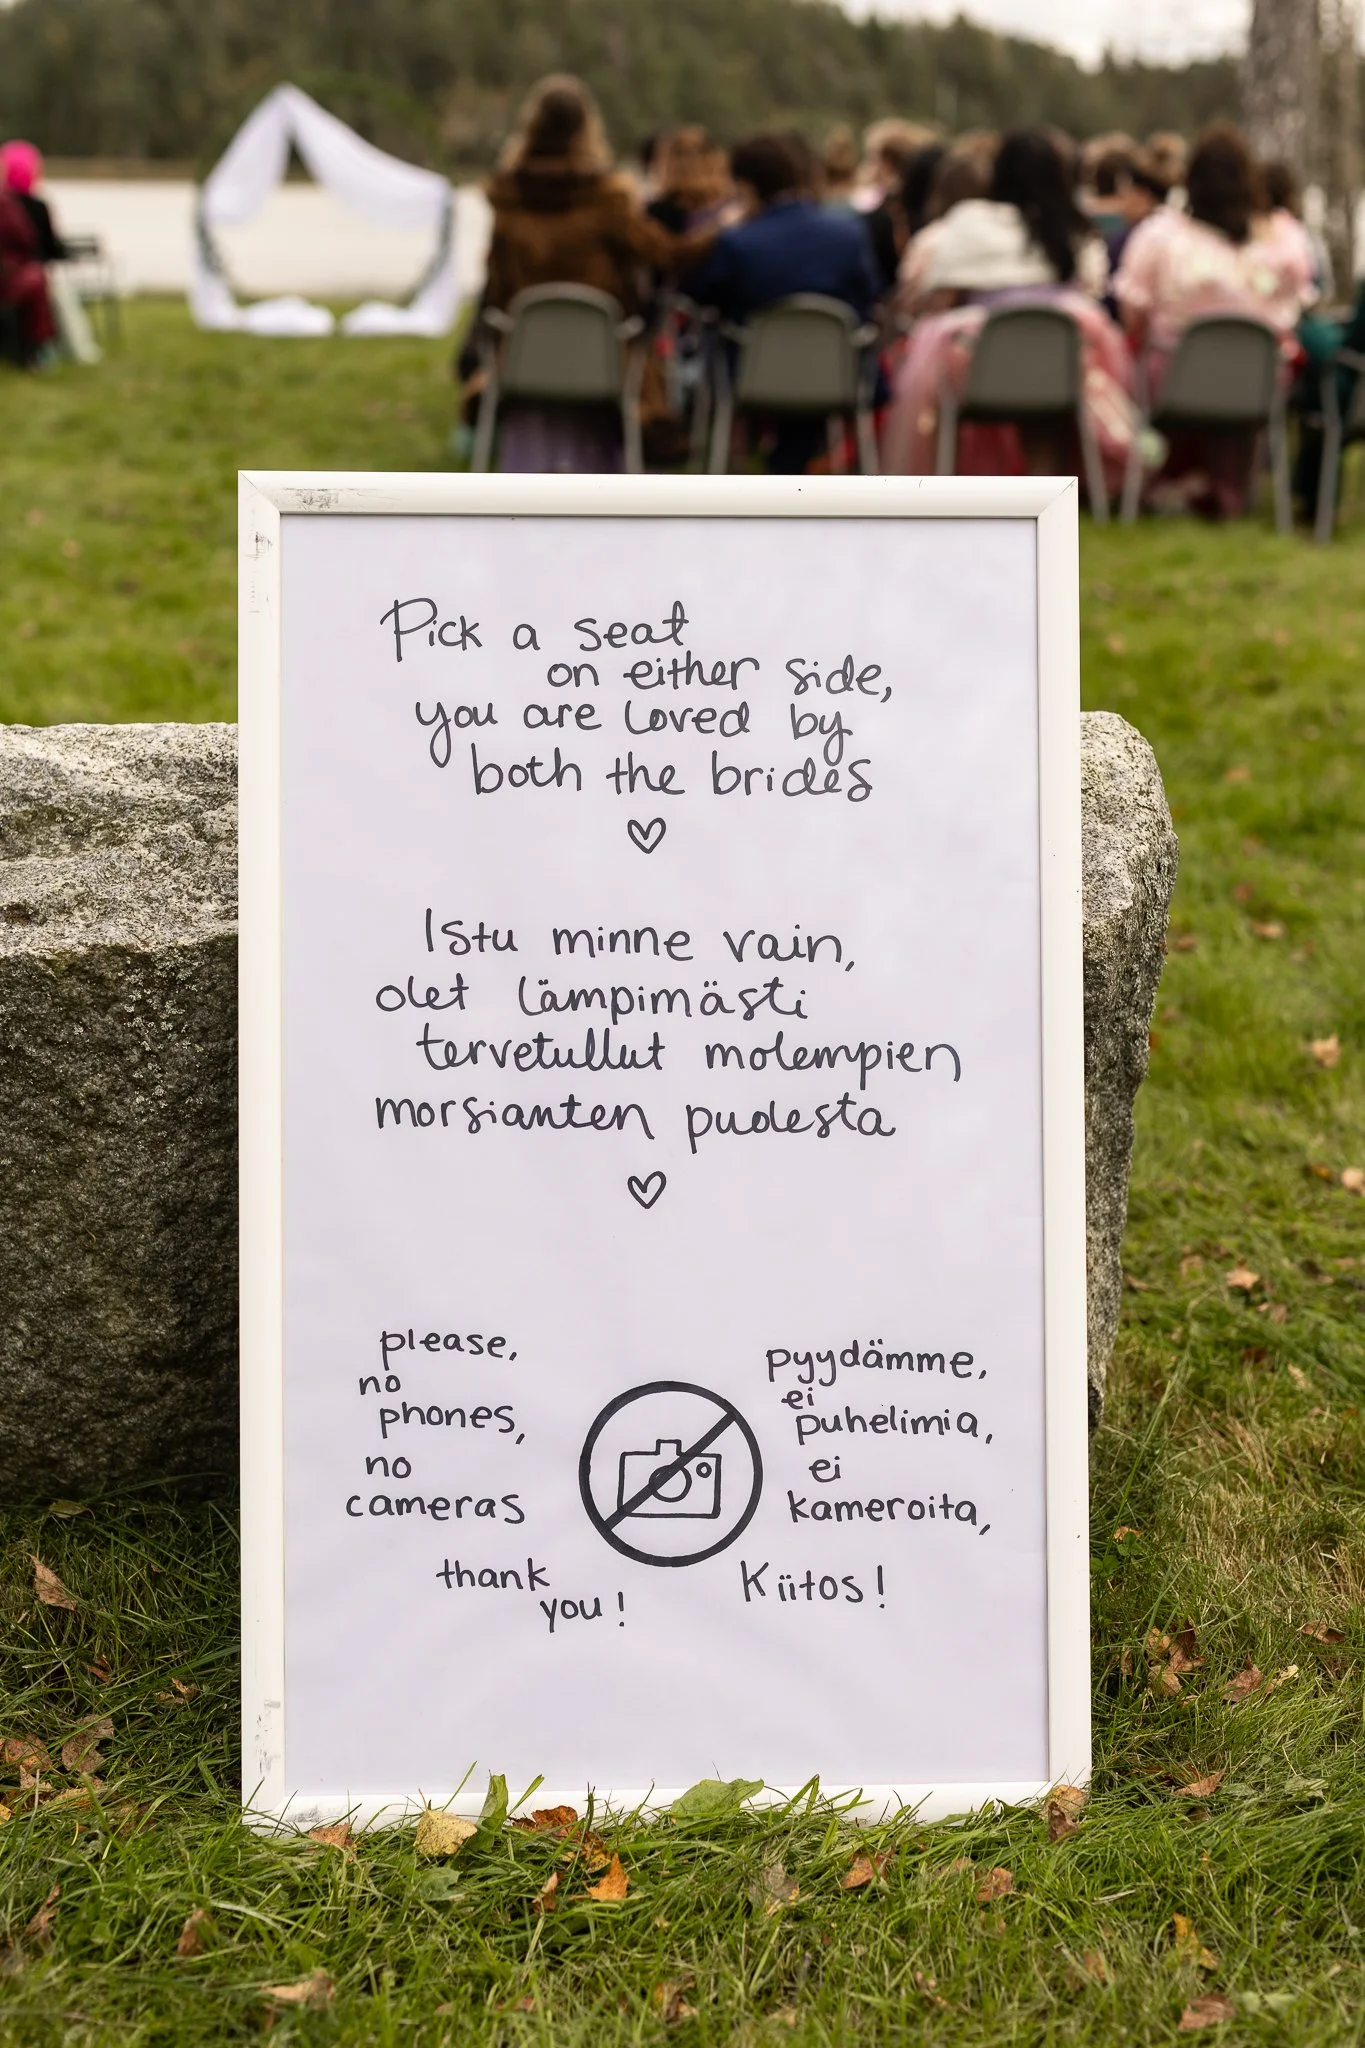 Pick a seat
on either side,
you are loved by
both the brides
♡
Istu minne vain,
olet lämpimästi
tervetullut molempien
morsianten puolesta
♡
please,
no
phones,
no
cameras
thank
you!
pyydämme,
ei
puhelimia,
ei
kameroita,
Kiitos!